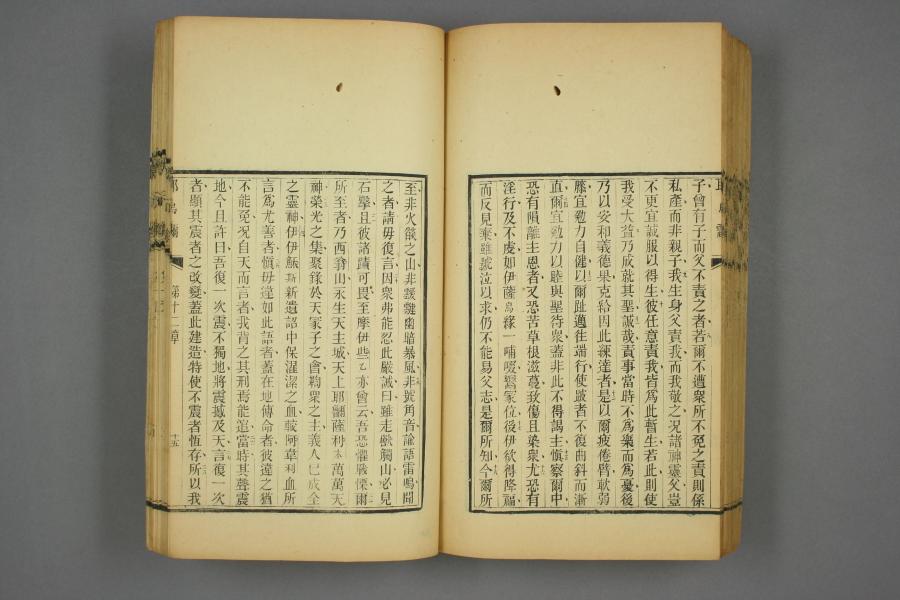 子曾有子而父不責之者若爾不遭衆所不免之責則係
私產而非親子我生身父責我而我敬之况諸神靈父豈
不更宜誠服以得生彼任意責我皆爲此暫生若此則使
我受大益乃成就其聖誠哉責事當時不爲樂而爲憂後
乃以安和義德果克給因此練達者是以爾疲倦臂軟弱
膝宜勉力自健以爾趾邁往端行使蹇者不復曲斜而漸
直爾宜勉力以睦與聖待衆蓋非此不得謁主愼察爾中
恐有隕離主恩者又恐苦草根滋蔓致傷且染衆尤恐有
淫行及不虔如伊薩烏緣一哺啜鬻家位後伊欲得降福
而反見棄雖號泣以求仍不能易父志是爾所知今爾所
至非火燄之山非靉靆幽暗暴風非號角音諭語雷鳴聞
之者請毋復言因衆弗能忍此嚴誡曰雖走獸觸山必見
石擊且彼諸蹟可畏至摩伊些乙亦曾云吾恐懼戰慄爾
所至者乃西翁山永生天主城天上耶
神榮光之集聚錄於天冢子之會鞫衆之主義人已成全
之靈神伊伊穌斯新遺詔中保濯潔之血較阿韋利血所
言爲尤善者愼毋違如此語者蓋在地傳命者彼違之猶
不能免况自天而言者我背之其刑焉能逭當時其聲震
地今且許曰吾復一次震不獨地將震撼及天言復一次
者顯其震者之改變蓋此建造特使不震者恆存所以我
第十二章